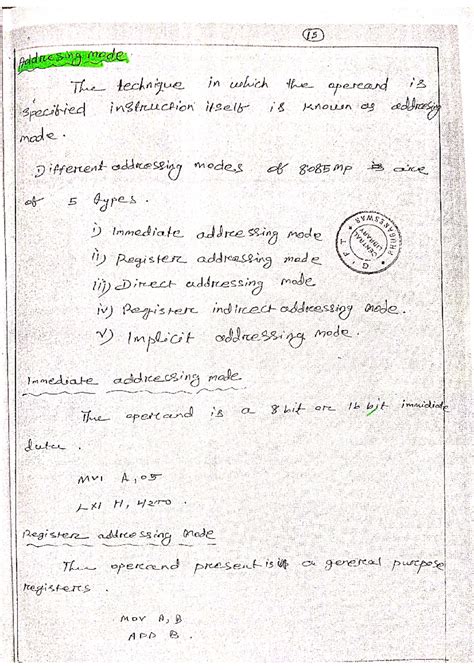 15
Addressing mode
The technique in which the opercand is
specified instruction itself is known as addressing
mode.
Different addressing modes of 8085MP is are
of 5 types.
i) Immediate addressing mode
ii) Registerc addressing mode
iii) Direct addressing mode
iv) Registerc indirect addressing mode.
v) Implicit addressing mode.
G I F T
CENTRAL
LIBRARY
BHUBANESWAR
Immediate addrecssing mode
The opercand is a 8 bit orc 16 bit immidiate
data.
MVI A, 05
LXI H, 4250.
Registerc addressing mode
The opercand present is in a general purcpose
registercs.
MOV A, B
ADD B.